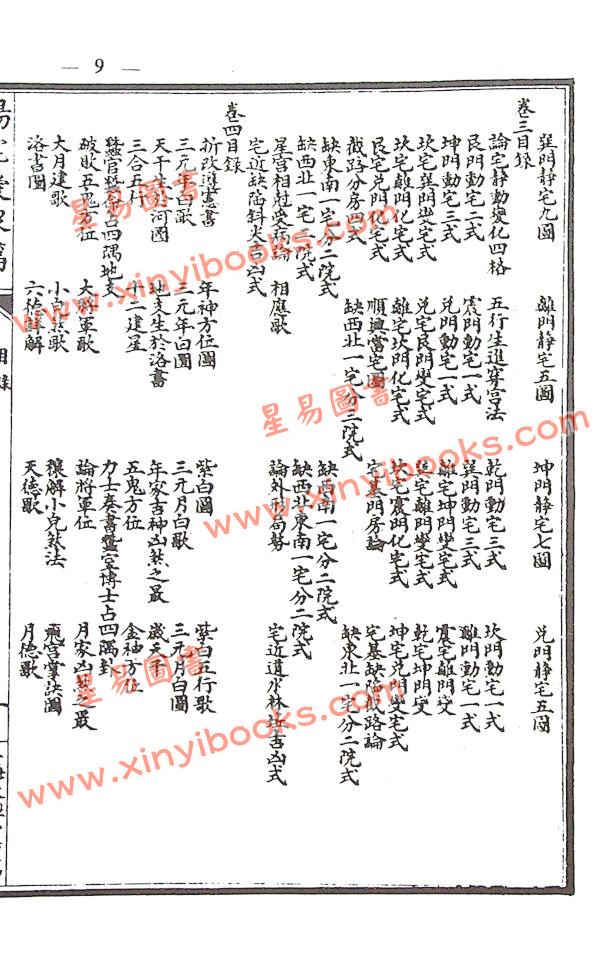 — 9 —
巽門静宅九圖 離門静宅五圖 坤門静宅七圖 兌門静宅五圖
卷三目錄
論宅静動變化四格 五行生進穿宫法 乾門動宅三式 坎門動宅一式
艮門動宅二式 震門動宅一式 巽門動宅三式 離門動宅一式
坤門動宅三式 兌門動宅一式 離宅坤門變宅式 震宅離門變
坎宅巽門變宅式 兌宅艮門變宅式 離門變宅式 乾宅坤門變
坎宅離門化宅式 離宅坎門化宅式 坎宅震門化宅式 坤宅兌門變宅式
艮宅兌門化宅式 順興當宅圖 宅基門房論 宅基缺陷截路論
截路分房四式 缺西北一宅分三院式 缺東北一宅分二院式
缺東南一宅分二院式 缺西南一宅分二院式
缺西北一宅二院式 缺西北東南一宅分二院式
星宫相尅受病論 相應歌 論外形局勢 宅近道水林吉凶式
宅近缺陷斜尖吉凶式
卷四目錄
折改選憲書 年神方位圖 紫白圖 紫白五行歌
三元年白歌 三元年白圖 三元月白歌 三元月白圖
天干生於河圖 地支生於洛書 年家吉神凶煞之最 歲天干
三合五行 十二建星 五鬼方位 金神方位
蠶官 占四隅地支 力士奏書蠶室博士占四隅卦
破敗五鬼方位 大將軍歌 論將軍位 月家凶煞之最
大月建歌 小兒煞歌 穰解小兒煞法 飛宫掌訣圖
洛書圖 六德 解 天德歌 月德歌
目錄
星易圖書
www.xinyibooks.com
星易圖書
www.xinyibooks.com
星易圖書
www.xinyibooks.com